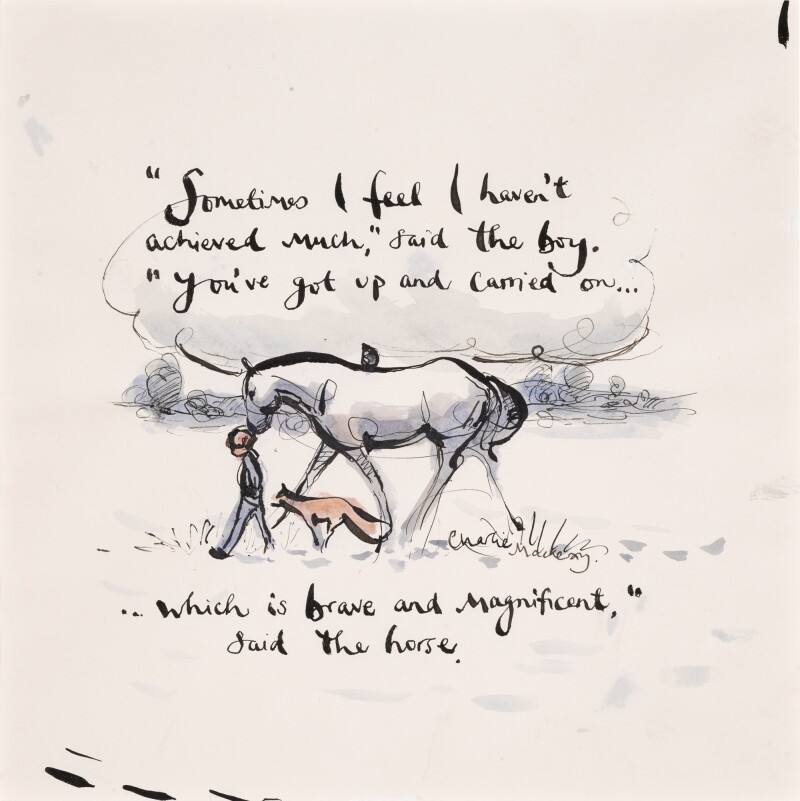 "Sometimes I feel I haven't
achieved much," said the boy.
"You've got up and carried on...
Charlie Mackesy.
... which is brave and magnificent,"
said the horse.